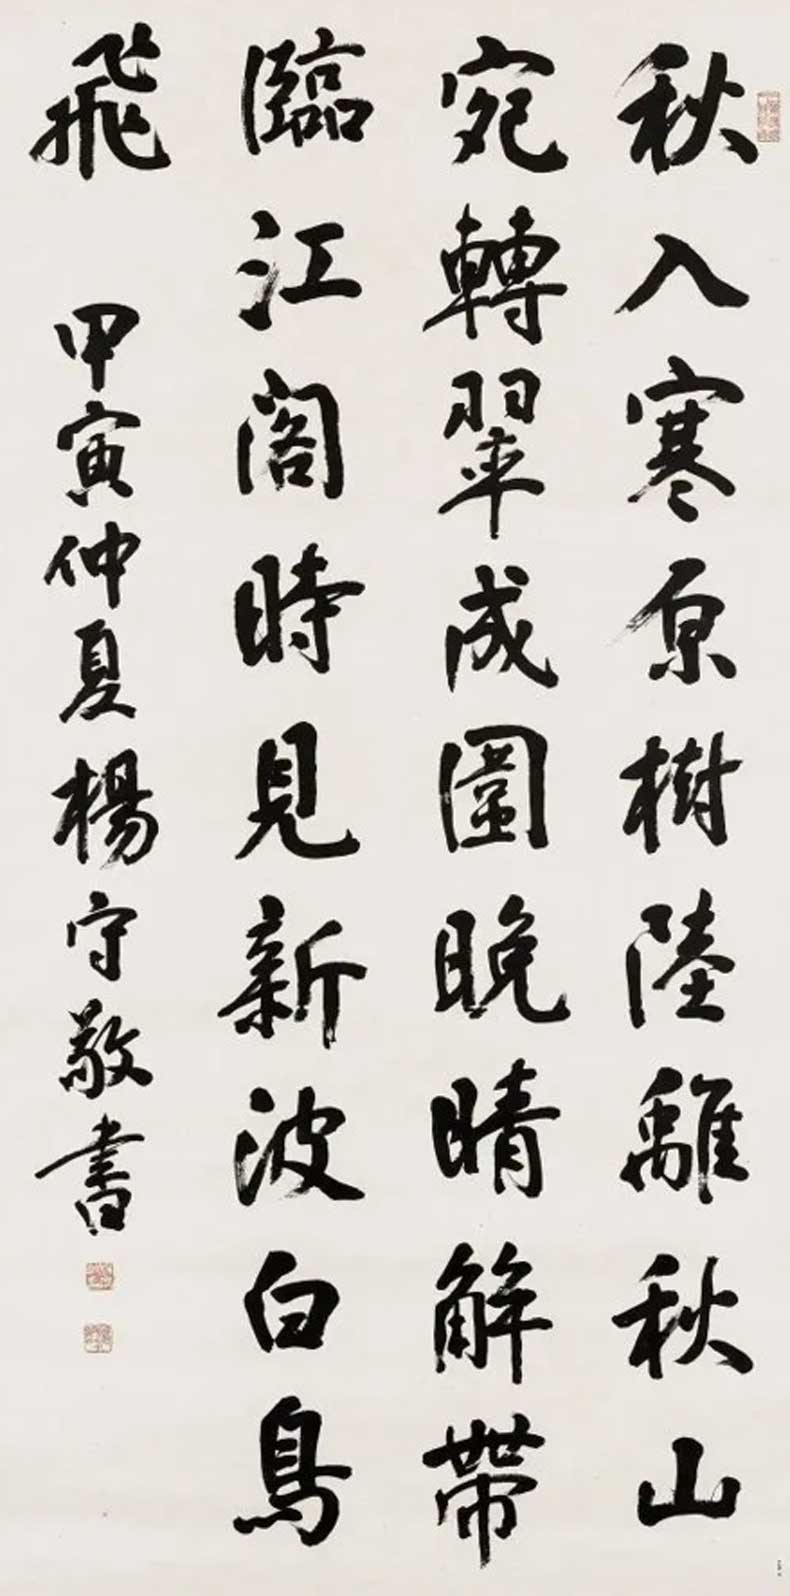 秋入寒原樹陸離秋山
宛轉翠成圍晚晴解帶
臨江閣時見新波白鳥
飛
甲寅仲夏楊守敬書